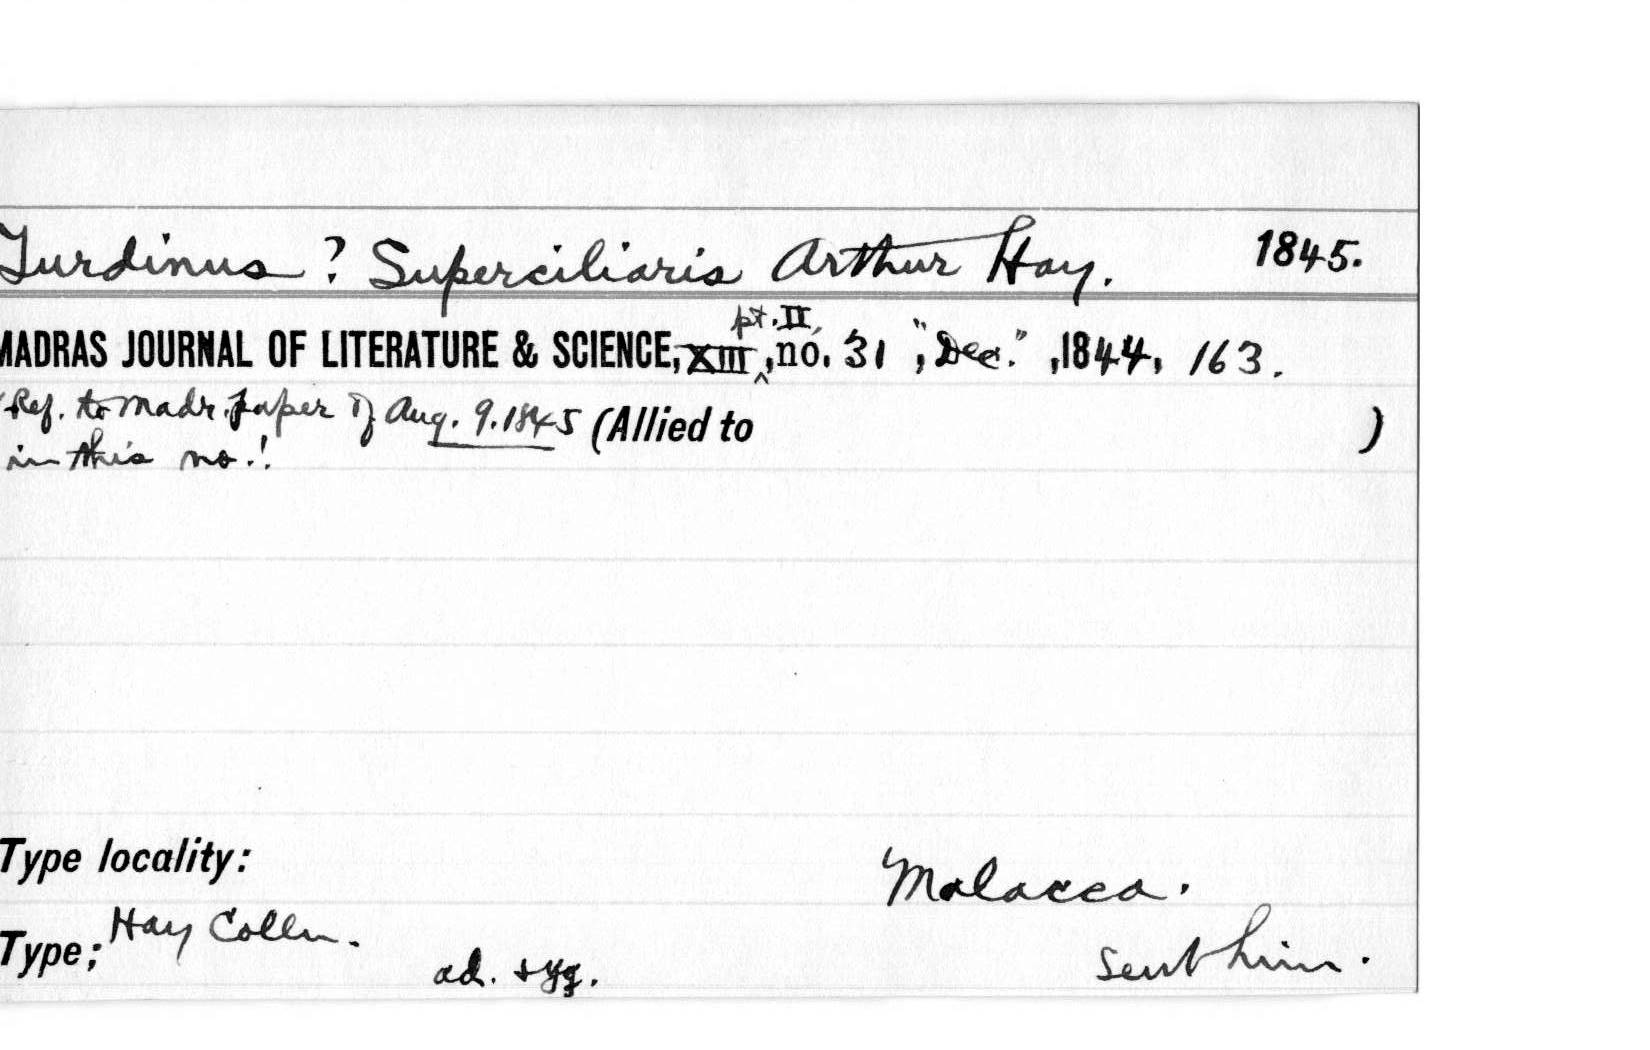 Turdinus ? Superciliaris Arthur Hay. 1845.
pt. II,
MADRAS JOURNAL OF LITERATURE & SCIENCE, XIII, no. 31, "Dec.", 1844, 163.
Ref. to Madr. paper of Aug. 9. 1845 (Allied to )
in this no.!
Type locality:
Malacca.
Type; Hay Colln.
ad. + yg. sent him.